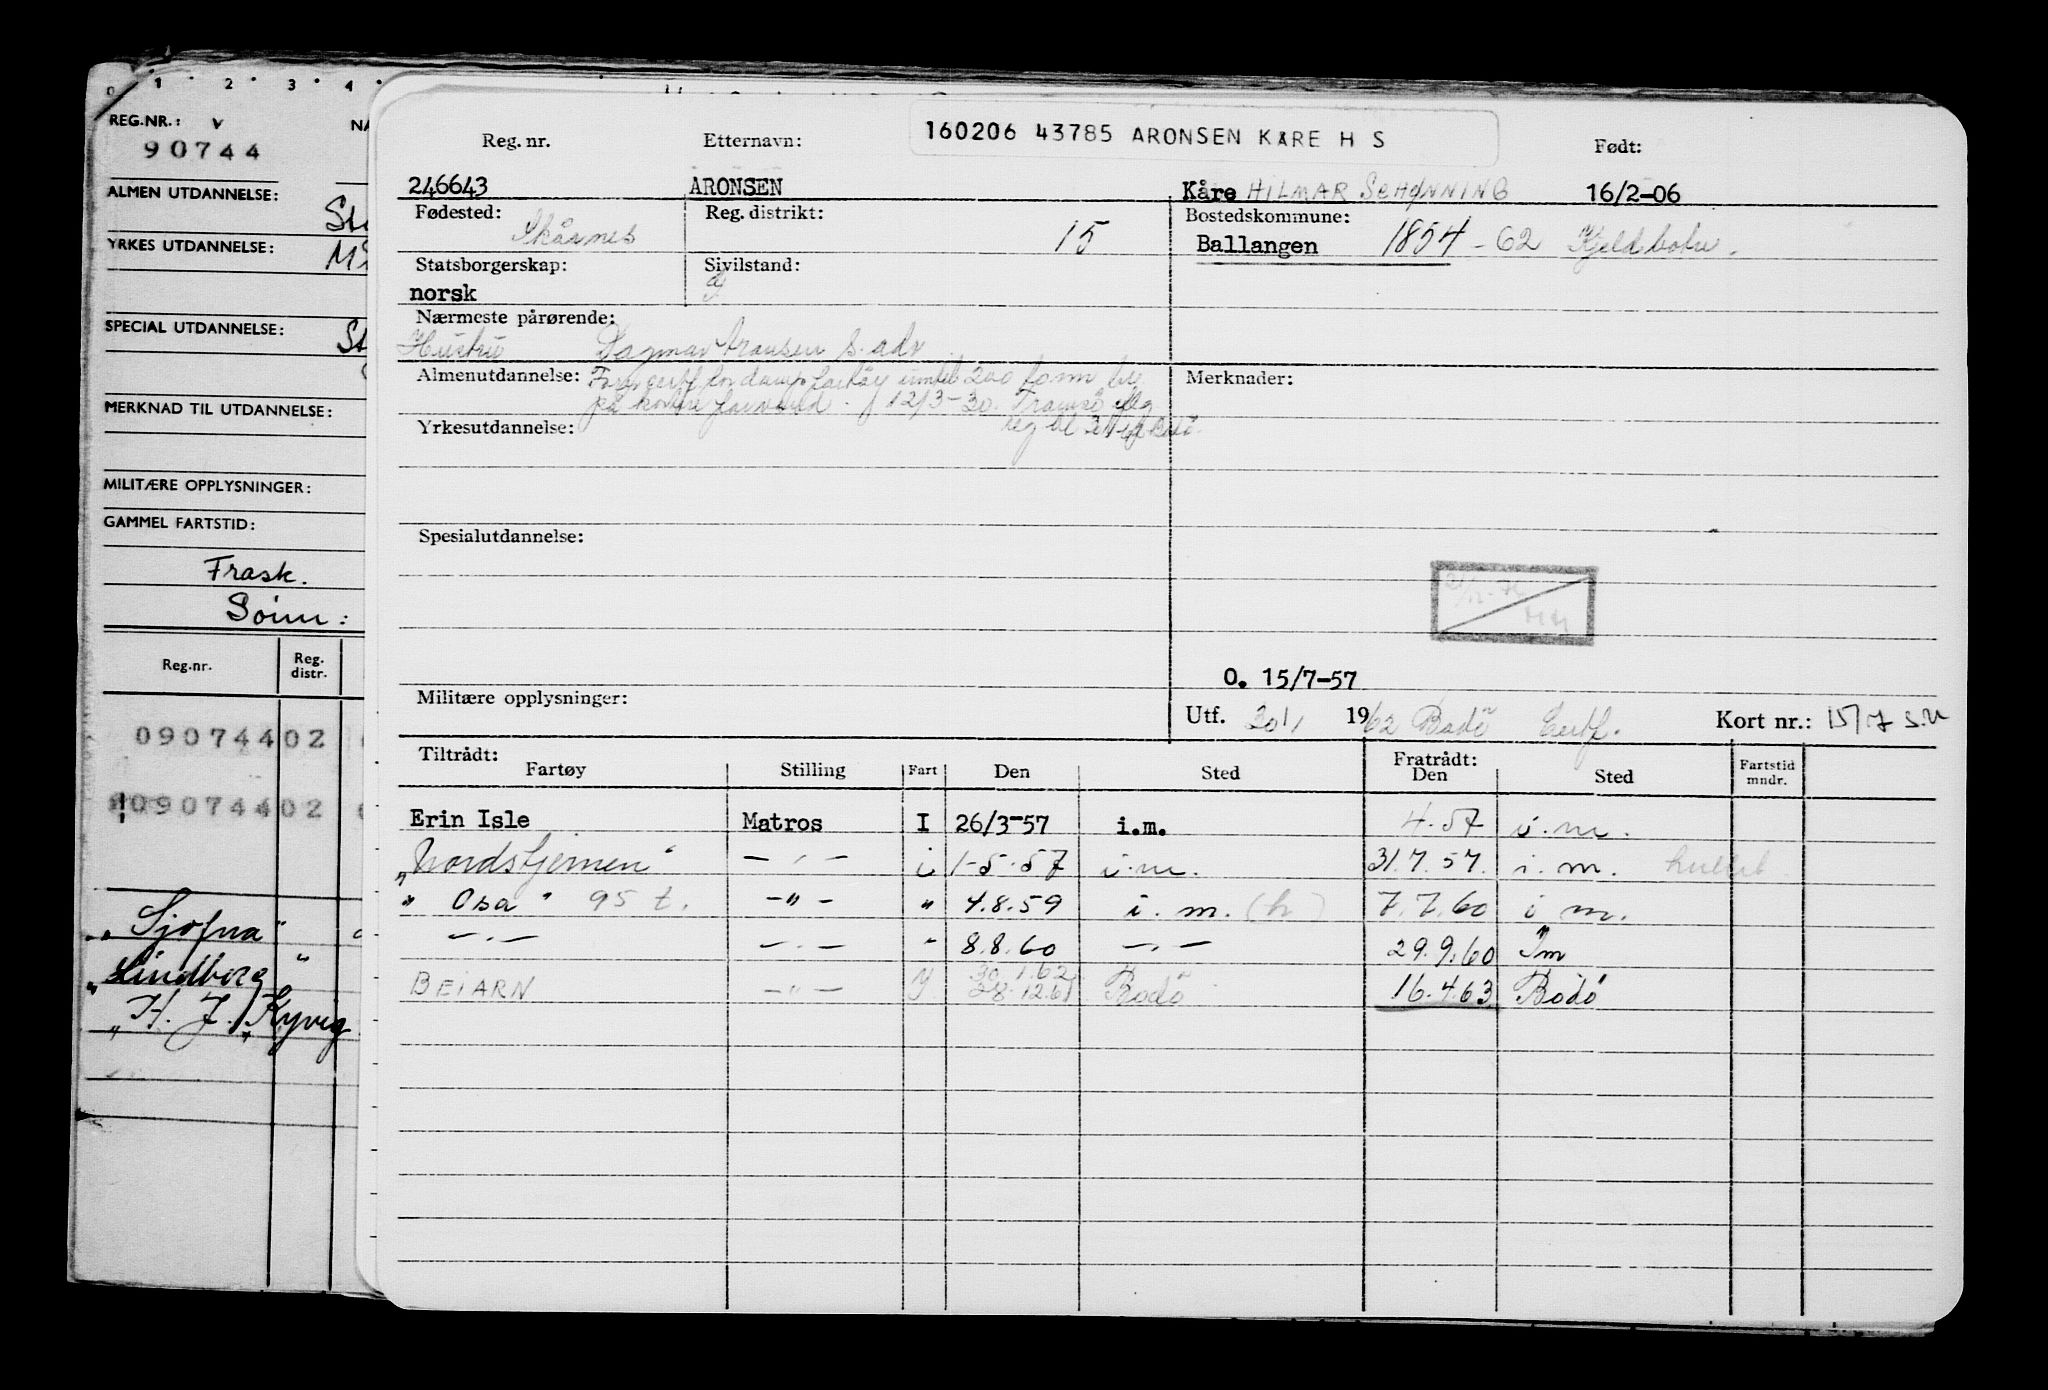 0 1 2 3 4
REG.NR.: V
90744
ALMEN UTDANNELSE:
YRKES UTDANNELSE:
SPECIAL UTDANNELSE:
MERKNAD TIL UTDANNELSE:
MILITÆRE OPPLYSNINGER:
GAMMEL FARTSTID:
Frask.
Reg.nr. Reg. distr.
09074402
09074402
"Sjøfna"
"Lindborg"
"H. J. Kyvig
160206 43785 ARONSEN KÅRE H S
Reg. nr. Etternavn: Født:
246643 ARONSEN Kåre HILMAR SCHØNNING 16/2-06
Fødested: Skårnes Reg. distrikt: 15 Bostedskommune:
Ballangen 1854 - 62 Kjeldebotn.
Statsborgerskap: Sivilstand:
norsk g
Nærmeste pårørende:
Hustru Dagmar Aronsen s. adr
Almenutdannelse: for damp fartøy inntil 200 tonn Merknader:
på 12/3-30. Tromsø
Yrkesutdannelse:
Spesialutdannelse:
O. 15/7-57
Militære opplysninger:
Utf. 30/1 1962 Bodø Kort nr.: 15/7
Tiltrådt: Fartøy Stilling Fart Den Sted Fratrådt: Den Sted Fartstid mndr.
Erin Isle Matros I 26/3-57 i.m. 4.57 i.m.
"Nordstjernen" — " — i 1-5-57 i.m. 31.7.57. i.m.
" Osa " 95 t. — " — " 4.8.59 i.m. (h) 7.7.60 i m.
— " — — " — " 8.8.60 — " — 29.9.60 Im
30.1.62
BEIARN — " — 28.12.61 Bodö 16.4.63 Bodö